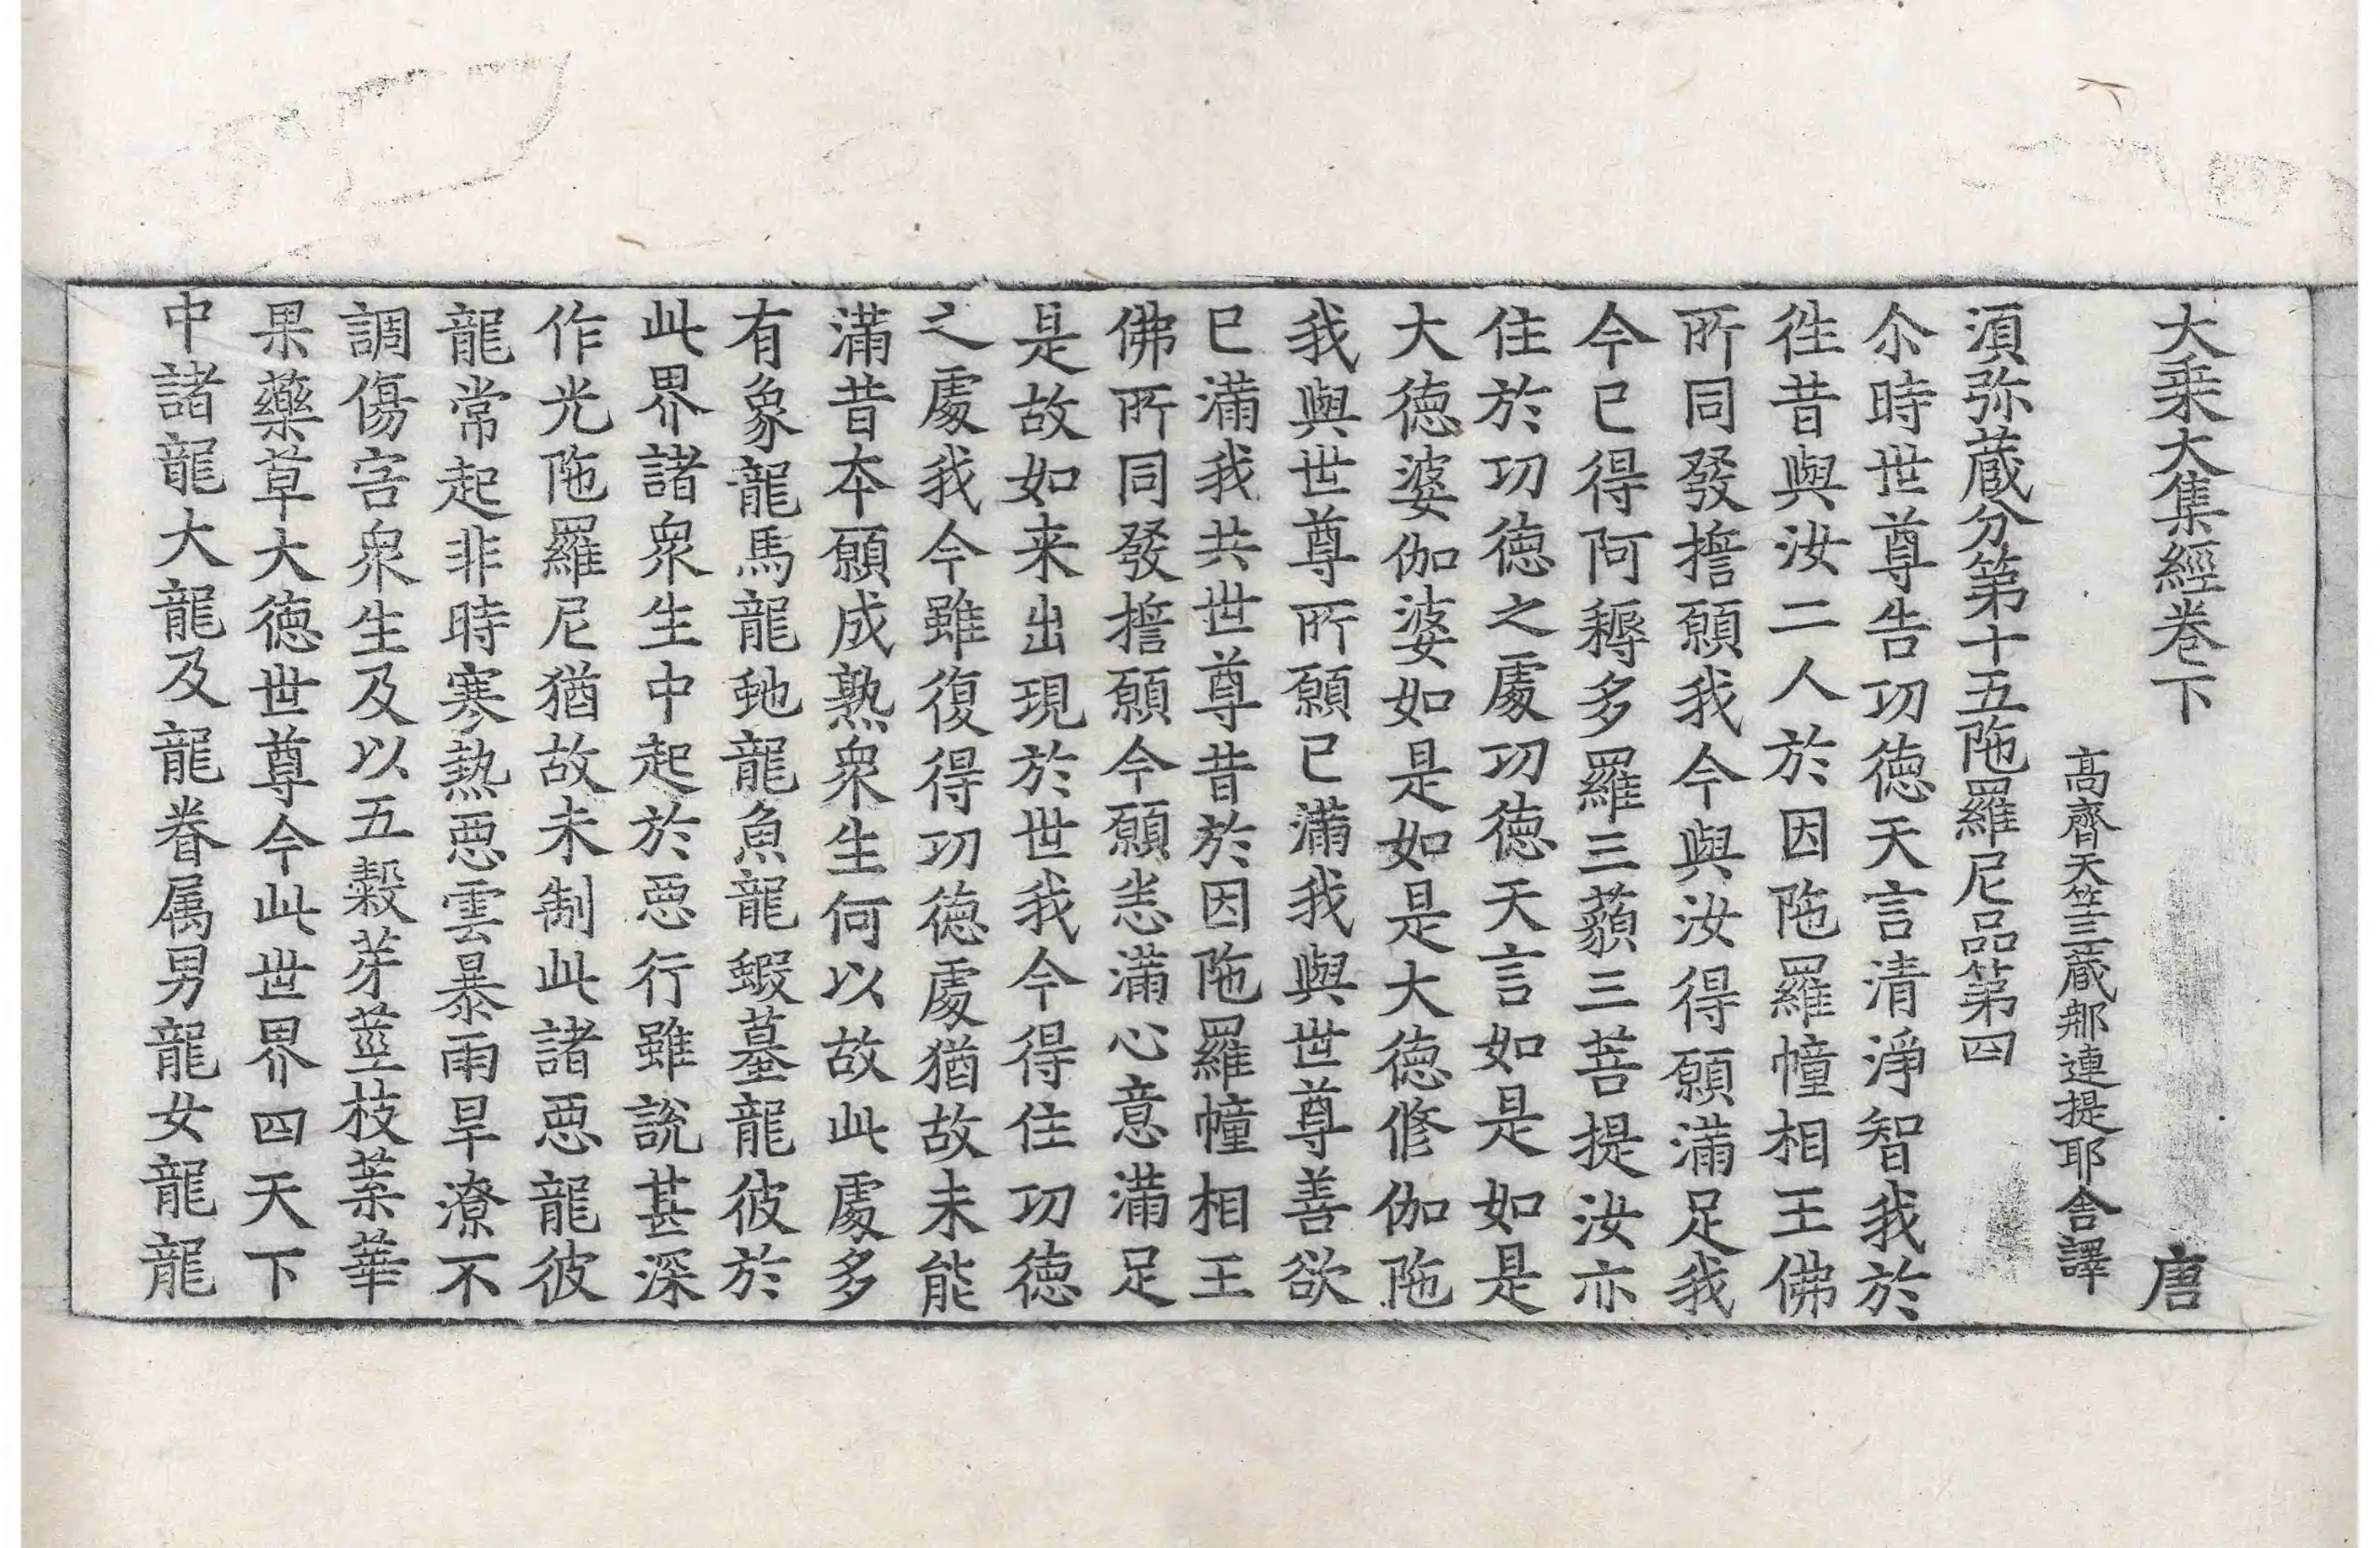 大乗大集經卷下　唐
高齊天竺三蔵那連提耶舍譯
湏弥蔵分第十五陁羅尼品第四
尒時世尊告功徳天言清淨智我於
徃昔與汝二人於因陁羅幢相王佛
所同發擔願我今與汝得願滿足我
今已得阿耨多羅三藐三菩提汝亦
住於功徳之處功徳天言如是如是
大徳婆伽婆如是如是大徳修伽陁
我與世尊所願已滿我與世尊善欲
已滿我共世尊昔於因陁羅幢相王
佛所同發擔願今願恙滿心意滿足
是故如来出現於世我今得住功徳
之處我今雖復得功徳處猶故未能
滿昔本願成熟衆生何以故此處多
有象龍馬龍虵龍魚龍蝦蟇龍彼於
此界諸衆生中起於惡行雖說甚深
作光陁羅尼猶故未制此諸惡龍彼
龍常起非時寒熱惡雲暴雨旱潦不
調傷害衆生及以五穀芽莖枝葉華
果藥草大徳世尊今此世界四天下
中諸龍大龍及龍眷属男龍女龍龍